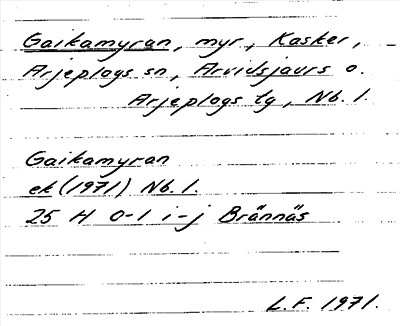 Gaikamyran, myr, Kasker,
Arjeplogs sn, Arvidsjaurs o.
Arjeplogs tg, Nb. l.
Gaikamyran
ek (1971) Nb. l.
25 H 0-1 i-j Brännäs
L.F. 1971.